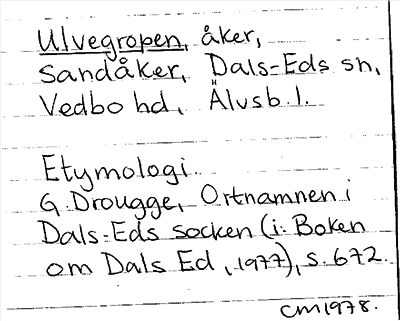 Ulvegropen, åker,
Sandåker, Dals-Eds sn,
Vedbo hd, Älvsb. l.
Etymologi
G. Drougge, Ortnamnen i
Dals-Eds socken (i: Boken
om Dals Ed, 1977), s. 672.
CM 1978.